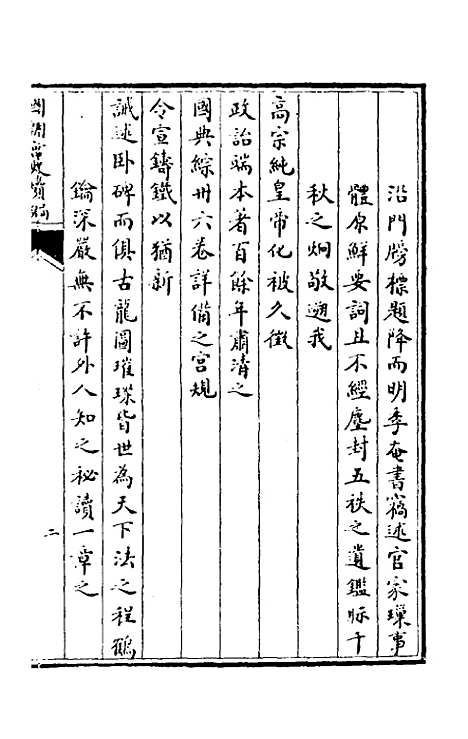 沿門牓標題降而明季奄書竊述官家璅事
體原鮮要詞且不經塵封五秩之遺鑑眎千
秋之炯敬遡我
高宗純皇帝化被久徵
政詒端本著百餘年肅清之
國典綜卅六卷詳備之宮規
令宣鑄鐵以猶新
誡述卧碑而俱古龍圖璀璨皆世為天下法之程鶴
鑰深嚴無不許外人知之秘讀一章之
國朝宮史續編
二